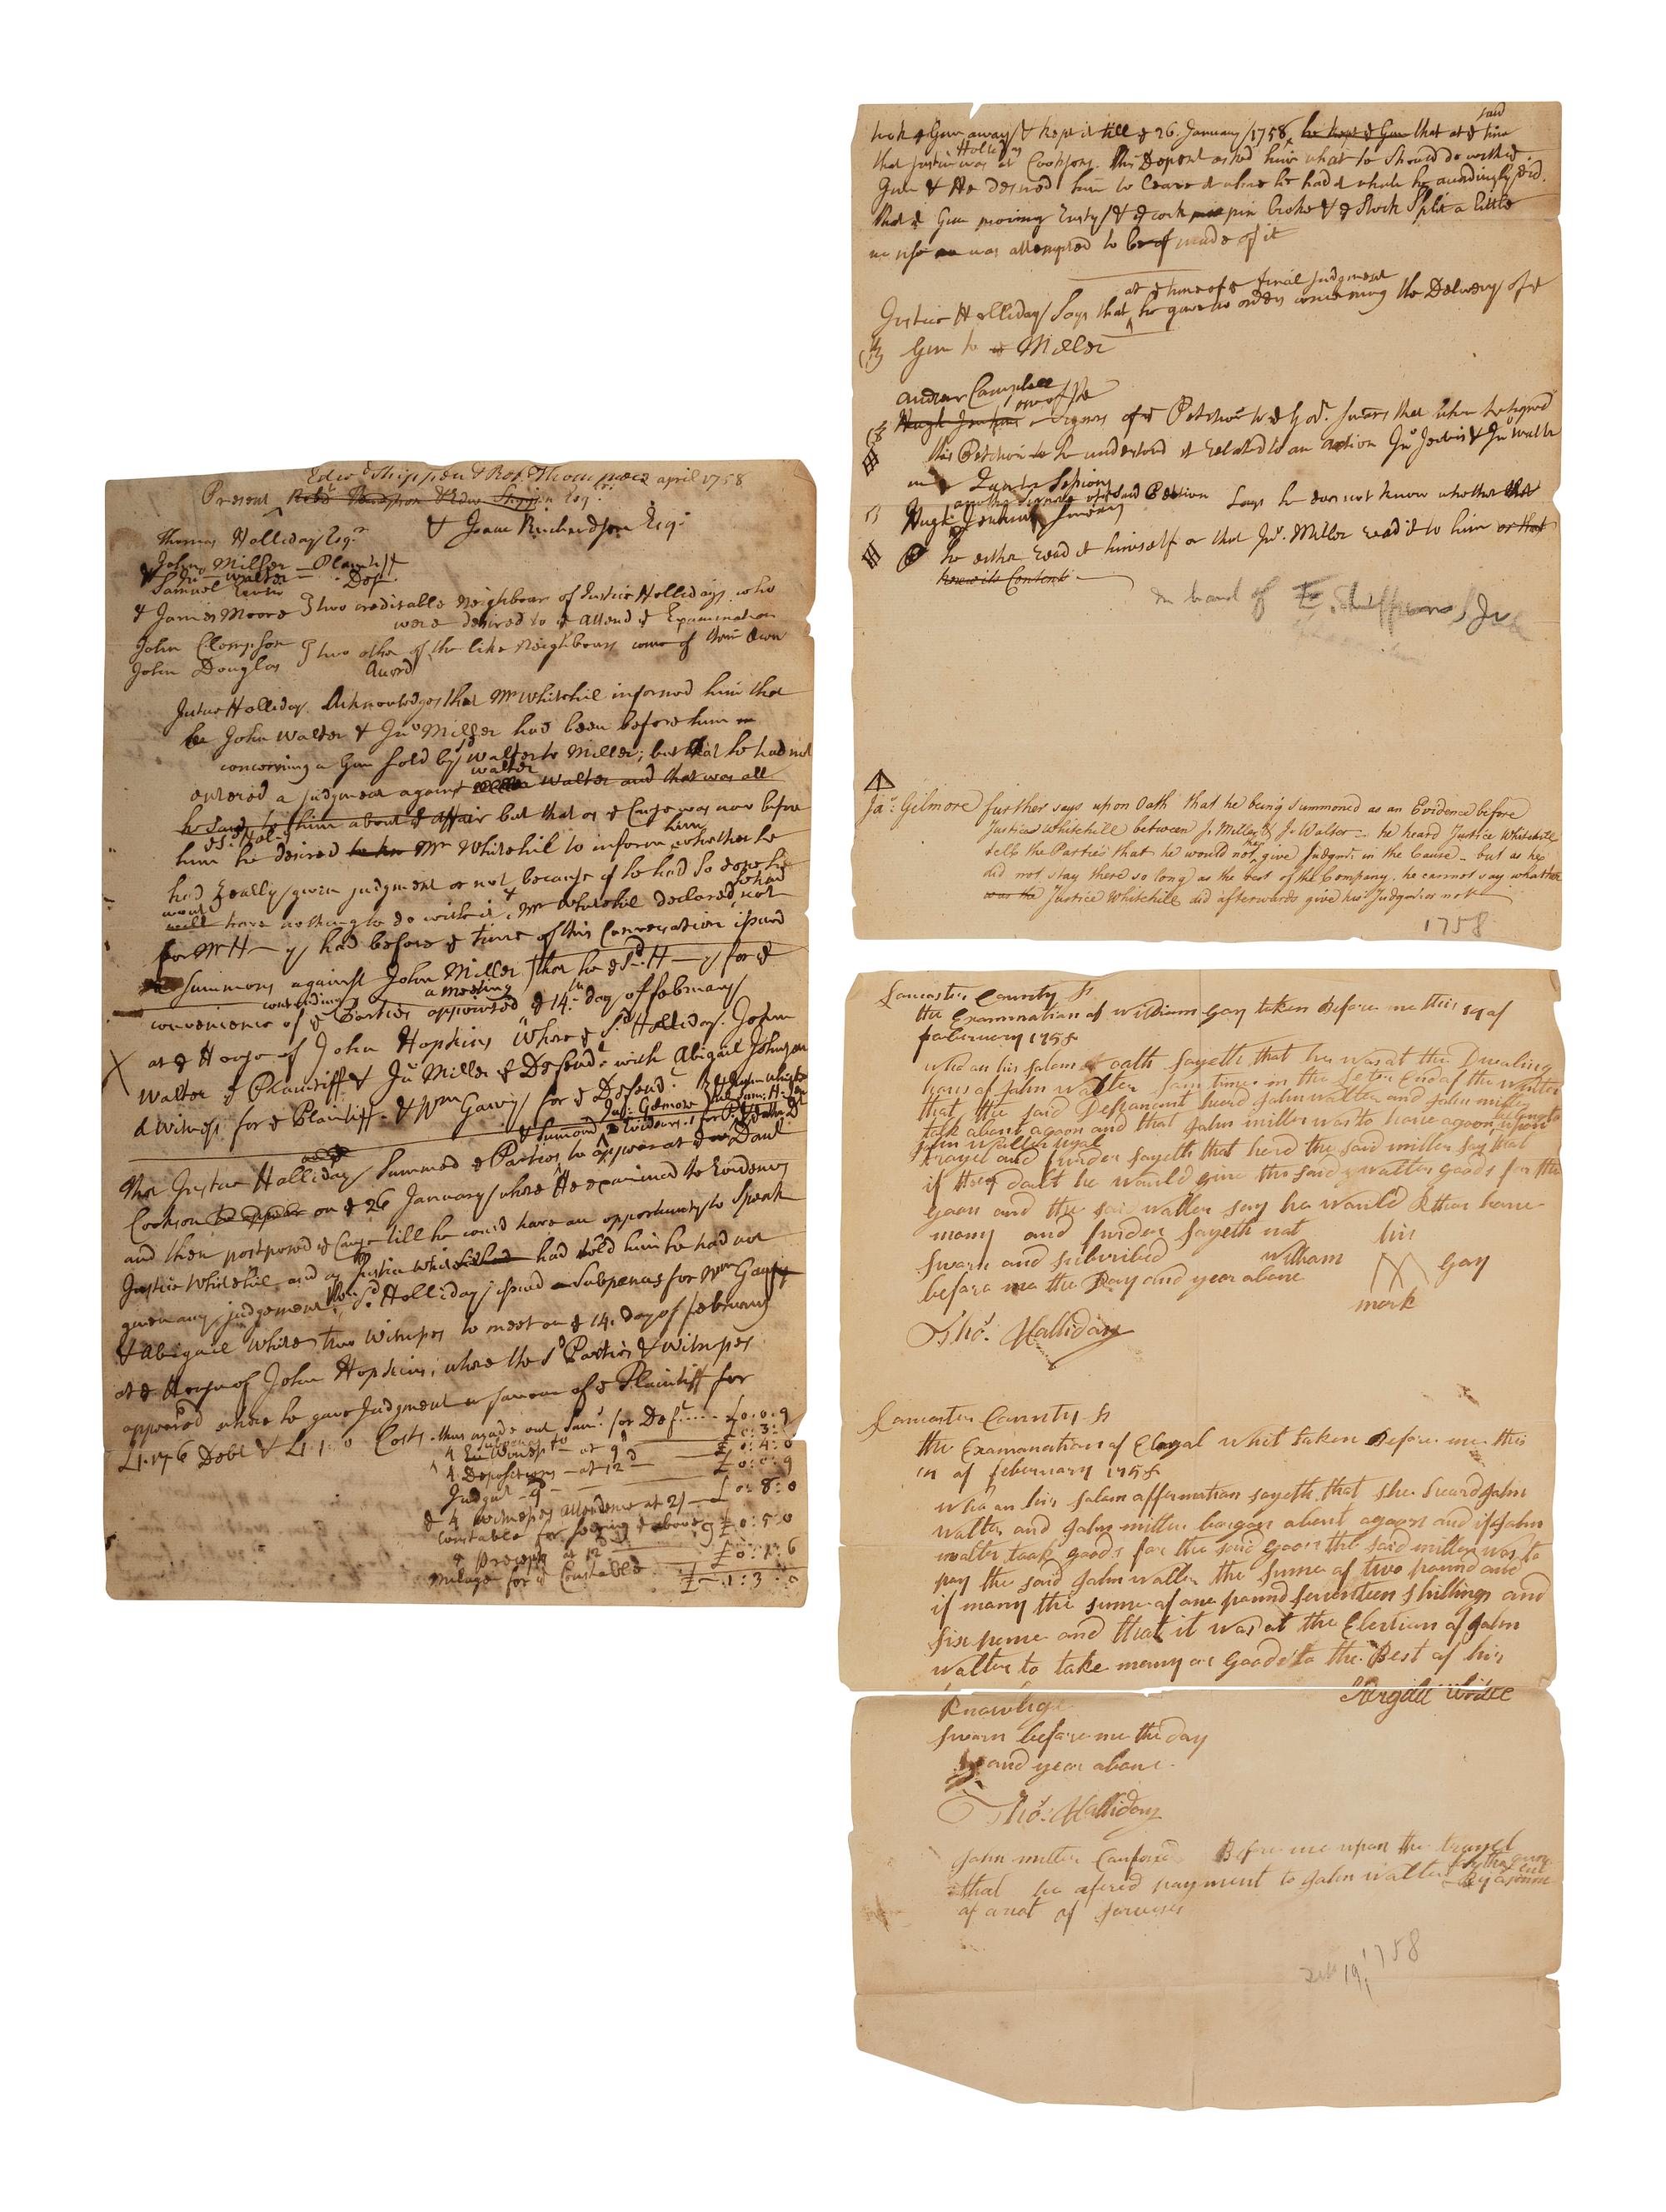 Edwd Shippen & Robt Thompson april 1758
Present Robt Thompson & Edwd Shippen Esqrs
& Isaac Richardson Esqr
Thomas Holliday Esqr
John Miller — Plantiff
& Jno Walter — Def
Samuel
& James Moore } two creditable Neighbours of Justice Hollidays who
were desired to attend ye Examination
John Clempson
John Douglas } two other of the like Neighbours come of their own
Accord
Justice Holliday Acknowledges that Mr Whitehil informed him that
he John Walter & Jno Miller had been before him on
concerning a Gun sold by sd Walter to Miller; but that he had not
entered a judgment against Walter Walter and that was all
he said to him about ye affair but that as ye Cause was now before
him he desired Mr Whitehil to inform him whether he
had really given judgment or not because if he had so done he
would have nothing to do with it & Mr Whitehil declared he had not
for Mr H—y had before ye time of this Conversation issued
a Summons against John Miller that he ye sd H—y for ye
convenience of ye contending Parties appointed a meeting ye 14th day of february
at ye House of John Hopkins Where ye sd Holliday. John
Walter ye Plaintiff & Jno Miller ye Defendt with Abigail Johnson
a Witness for ye Plaintiff & Wm Gawy for ye Defendt
That Justice Holliday Summond ye Parties to appear at Danl
Cookson to appear on ye 26 January where He examined the Evidences
and then postponed ye Cause till he could have an opportunity to Speak
Justice Whitehil and as Justice Whitehil had told him he had not
given any judgement sd Holliday issued Subpenas for Wm Gawy
& Abigail White two Witnesses to meet on ye 14. day of february
at ye House of John Hopkins; where the sd Parties & Witnesses
appeared where he gave Judgment in favour of ye Plaintiff for
£1.17.6 Debt & £1.1.0 Costs thus made out Sums for Deft .... £0.0.9
4 Subpenas to at 9d £0:3:
4 Depositions — at 12d — £0:4:0
Judgmt 9d £0:0:9
& 4 Witnesses attendence at 2/ — £0:8:0
Constable for serving ye above £0:5:0
at 12d
Milage for ye Constable £0:1:6
£1:3:0
took ye Gun away & kept it till ye 26. January 1758, he kept ye Gun that at ye said time
that Justice Holliday was at Cooksons. This Deponent asked him what he should do with ye
Gun & He desired him to leave it where he had it which he accordingly did.
that ye Gun proving rusty & ye cock pin broke & ye Stock Split a little
no use was attempted to be made of it
at ye time of ye final judgment
Justice Holliday Says that he gave no orders concerning the Delivery of ye
Gun to ye Miller
Andrew Campbell
Hugh Jenkins one of the signers of ye Petition to ye Govr. Swears that when he signed
this Petition he understood it related to an Action Jno Jervis & Jno Walter
in ye Quarter Sessions
another signer of ye said Petition
Hugh Jenkins Sworn Says he does not know whether that
he either read it himself or that Jno. Miller read it to him or that
knew its Contents
In hand of E. Shippen, Jr
Jas. Gilmore further says upon Oath that he being summoned as an Evidence before
Justice Whitehill between J. Miller & J. Walter — he heard Justice Whitehill
tell the Parties that he would not then give Judgmt. in the Cause — but as he
did not stay there so long as the rest of the Company, he cannot say whether
was the Justice Whitehill did afterwards give his Judgmt or not
1758
Lancaster County Ss
the Examination of William Gay taken Before me this 14 of
february 1758
Who on his Solem oath sayeth that he was at the Dwaling
hous of John Walter som time in the Leter End of the winter
that the said Defranent heard John Walter and John miller
talk about agoon and that John miller was to have agoon belongto
John Walter upon
trayel and furder sayeth that herd the said miller say that
if they dalt he would give the said walter goods for the
goon and the said walter say he would Rther have
mony and furder sayeth not
Sworn and subsribed
before me the Day and year above
William his mark Gay
Thos. Halliday
Lancaster County Ss
the Examanation of Ebegal Whit taken Before me this
14 of february 1758
Who on his solam affermation sayeth that she heard John
walter and John miller bargan about agoon and if John
walter took goods for the said goon the said miller was to
pay the said John walter the sume of two pound and
if mony the sume of one pound seventeen shillings and
six pence and that it was at the Election of John
walter to take mony or Goods to the Best of his
Knowlige
Abigill White
sworn before me the day
and year above
Thos. Halliday
John miller Confesed Before me upon the trayel
that he afered payment to John walter for the goon
of a not of
Feb 19, 1758